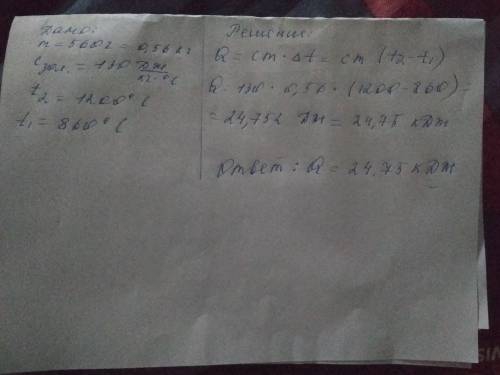 Дано:
m = 560 г = 0,56 кг
Cзол. = 130 Дж/кг·°C
t2 = 1200°C
t1 = 860°C
Решение:
Q = cm·Δt = cm (t2-t1)
Q = 130·0,56·(1200-860) =
= 24,752 Дж = 24,75 кДж
Ответ: Q = 24,75 кДж